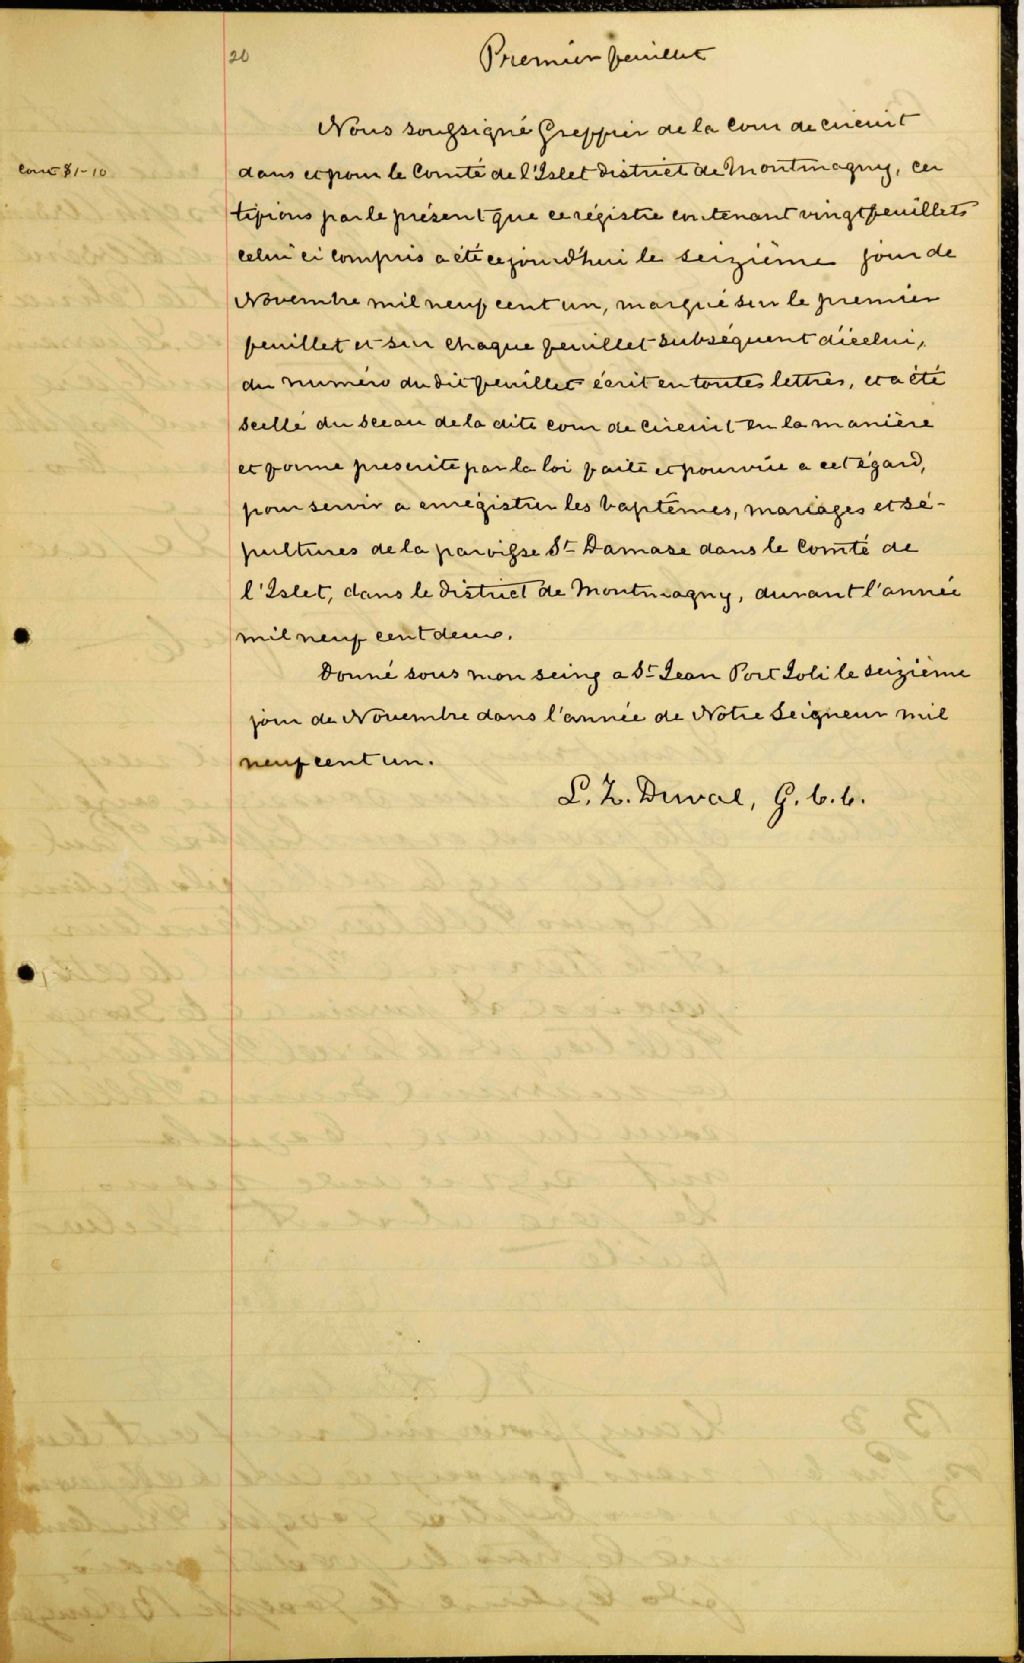 20
Premier feuillet
Nous soussigné Greffier de la Cour de circuit
Cout $1-10
dans et pour le Comté de l'Islet District de Montmagny, cer
tifions par le présent que ce régistre contenant vingt feuillets
celui ci compris a été ce jourd'hui le seizième jour de
Novembre mil neuf cent un, marqué sur le premier
feuillet et sur chaque feuillet subséquent d'icelui,
du numéro du dit feuillet écrit en toutes lettres, et a été
scellé du sceau de la dite cour de circuit en la manière
et forme prescrite par la loi faite et pourvue a cet égard,
pour servir a enrégistrer les baptêmes, mariages et sé-
pultures de la paroisse St Damase dans le Comté de
l'Islet, dans le District de Montmagny, durant l'année
mil neuf cent deux.
Donné sous mon seing a St Jean Port Joli le seizième
jour de Novembre dans l'année de Notre Seigneur mil
neuf cent un.
L. Z. Duval, G. C. C.